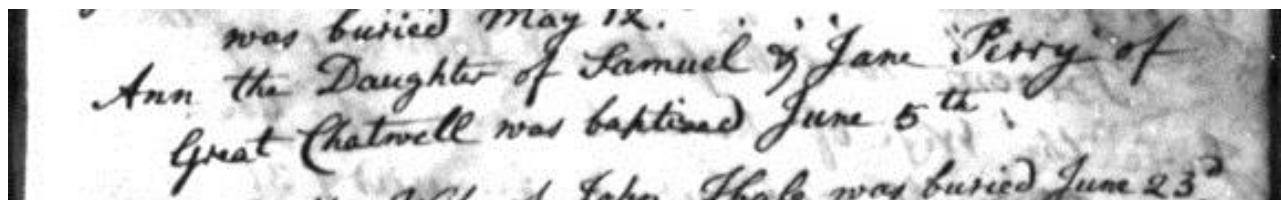 was buried May 12.
Ann the Daughter of Samuel & Jane Perry of
Great Chatwell was baptized June 5th.
Wife of John was buried June 23d